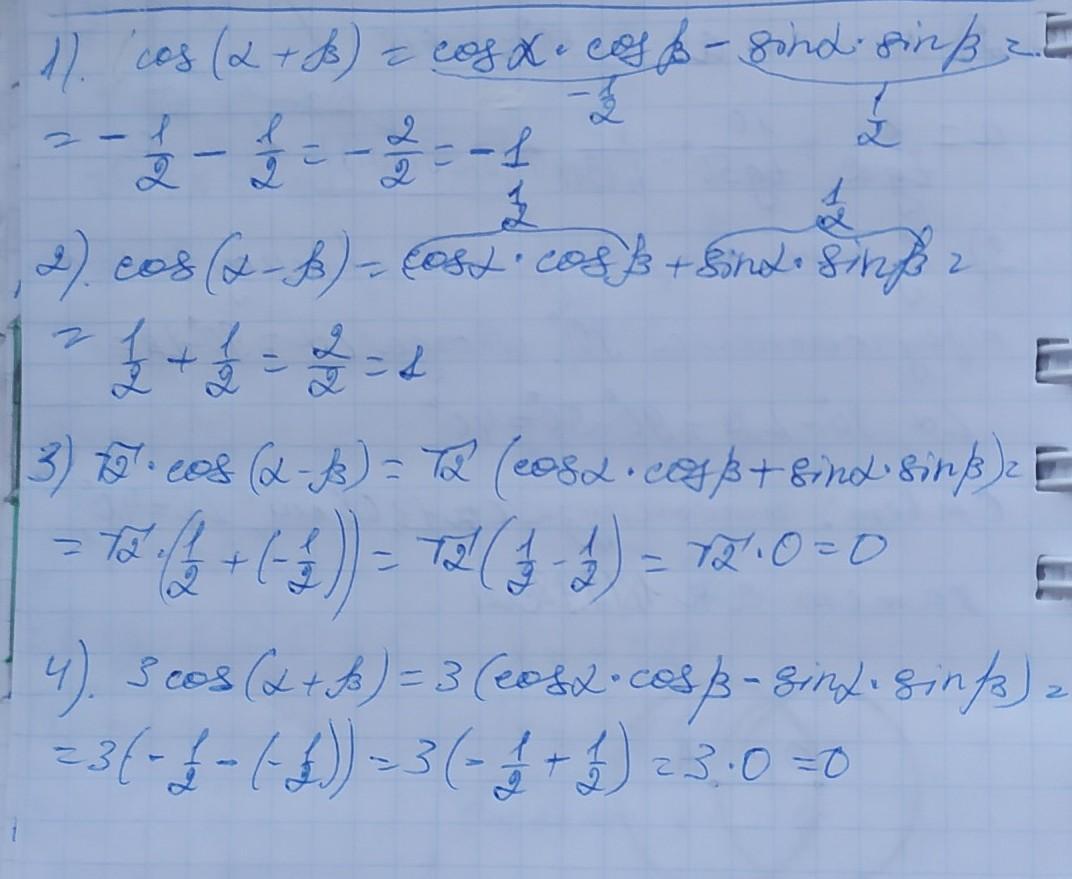 1). cos(α+β) = cosα · cosβ - sinα · sinβ =
-1/2 1/2
= -1/2 - 1/2 = -2/2 = -1
1/2 1/2
2). cos(α-β) = cosα · cosβ + sinα · sinβ =
= 1/2 + 1/2 = 2/2 = 1
3) √2 · cos(α-β) = √2 (cosα · cosβ + sinα · sinβ) =
= √2 · (1/2 + (-1/2)) = √2 (1/2 - 1/2) = √2 · 0 = 0
4). 3 cos(α+β) = 3 (cosα · cosβ - sinα · sinβ) =
= 3(-1/2 - (-1/2)) = 3(-1/2 + 1/2) = 3 · 0 = 0